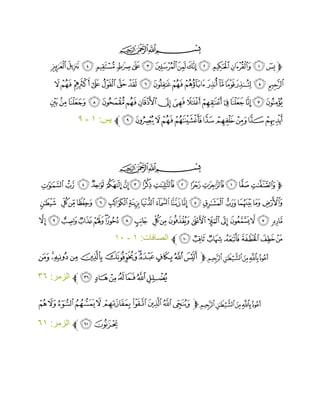 بسم الله الرحمن الرحيم
﴿ يس ۝١ والقرءان الحكيم ۝٢ إنك لمن المرسلين ۝٣ على صراط مستقيم ۝٤ تنزيل العزيز
الرحيم ۝٥ لتنذر قوما ما أنذر ءاباؤهم فهم غافلون ۝٦ لقد حق القول على أكثرهم فهم لا
يؤمنون ۝٧ إنا جعلنا في أعناقهم أغلالا فهي إلى الأذقان فهم مقمحون ۝٨ وجعلنا من بين
أيديهم سدا ومن خلفهم سدا فأغشيناهم فهم لا يبصرون ۝٩ ﴾ يس: ١ - ٩
بسم الله الرحمن الرحيم
﴿ والصافات صفا ۝١ فالزاجرات زجرا ۝٢ فالتاليات ذكرا ۝٣ إن إلهكم لواحد ۝٤ رب السماوات
والأرض وما بينهما ورب المشارق ۝٥ إنا زينا السماء الدنيا بزينة الكواكب ۝٦ وحفظا من كل شيطان
مارد ۝٧ لا يسمعون إلى الملإ الأعلى ويقذفون من كل جانب ۝٨ دحورا ولهم عذاب واصب ۝٩ إلا
من خطف الخطفة فأتبعه شهاب ثاقب ۝١٠ ﴾ الصافات: ١ - ١٠
أعوذ بالله من الشيطان الرجيم ﴿ أليس الله بكاف عبده ويخوفونك بالذين من دونه ومن
يضلل الله فما له من هاد ۝٣٦ ﴾ الزمر: ٣٦
أعوذ بالله من الشيطان الرجيم ﴿ وينجي الله الذين اتقوا بمفازتهم لا يمسهم السوء ولا هم
يحزنون ۝٦١ ﴾ الزمر: ٦١